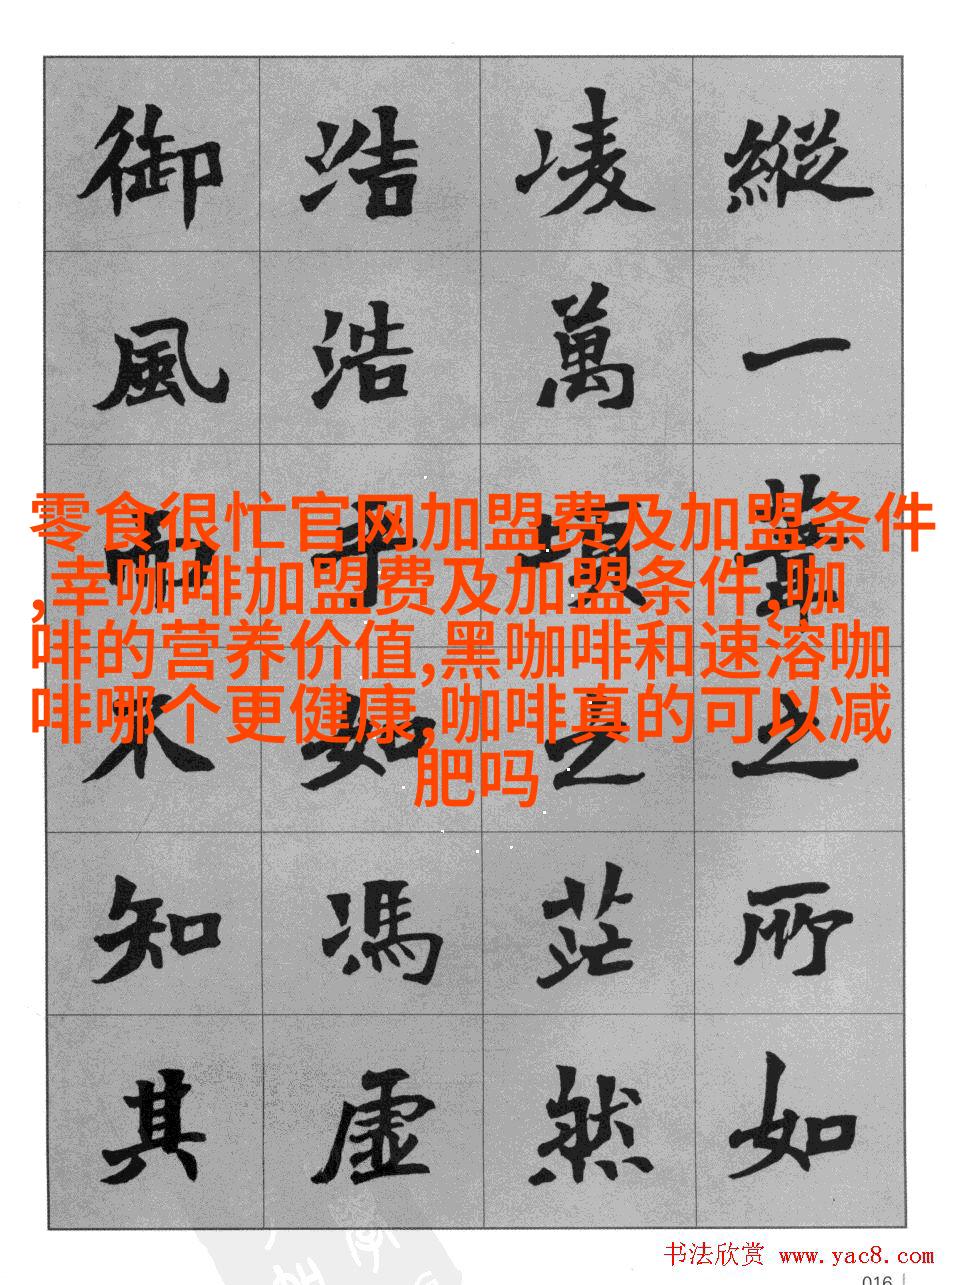 縱一葦之所如
凌萬頃之茫然
浩浩乎如馮虛
御風而不知其
零食很忙官网加盟费及加盟条件
,幸咖啡加盟费及加盟条件,咖
啡的营养价值,黑咖啡和速溶咖
啡哪个更健康,咖啡真的可以减
肥吗
书法欣赏 www.yac8.com
016